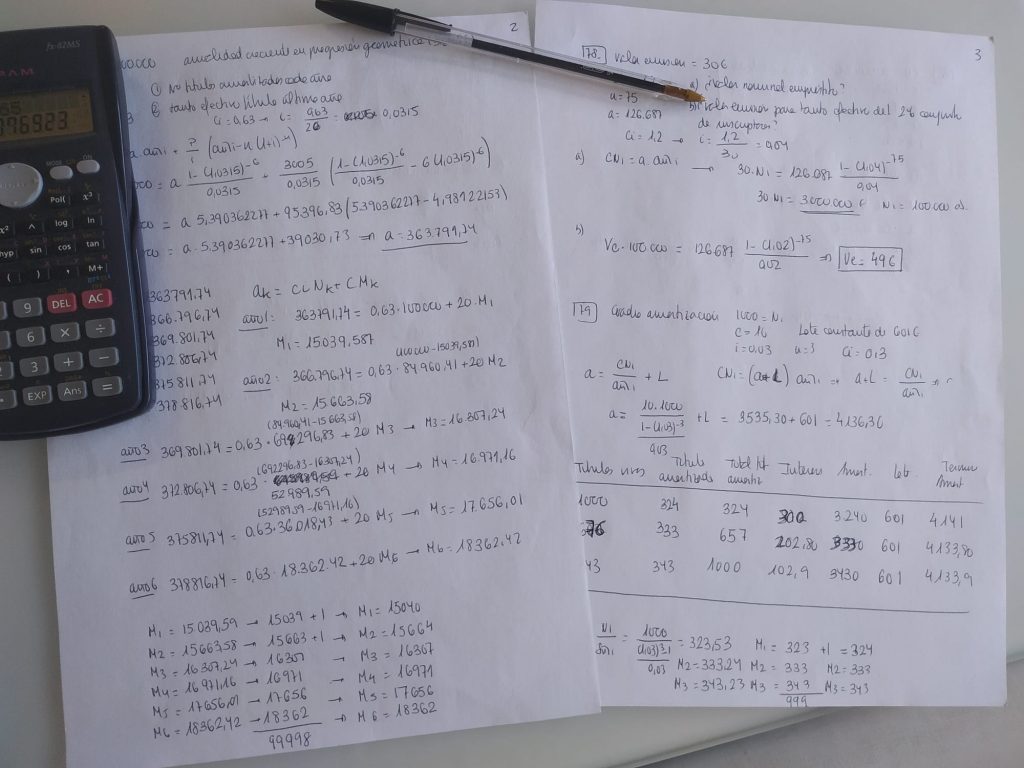 fx-82MS
076923
MODE
ON
Pol(
x³
x²
^
log
ln
hyp
sin
cos
tan
(
)
,
M+
9
DEL
AC
6
×
÷
3
+
−
EXP
Ans
=
2
anualidad creciente en progresión
① Nº titulos amortizados cada año
tanto efectivo título último año
Ci = 0,63 → i = 0,63 / 20 = 0,0315
= a 1-(1,0315)^-6 / 0,0315 + 3005 / 0,0315 (1-(1,0315)^-6 / 0,0315 - 6(1,0315)^-6)
= a 5,390362277 + 95396,83 (5,390362277 - 4,981222153)
= a · 5,390362277 + 39030,73 ⇒ a = 363.791,74
363791,74
366.796,74
369.801,74
372.806,74
375811,74
378.816,74
aK = CiNK + CMK
año 1: 363791,74 = 0,63 · 100000 + 20 · M1
M1 = 15039,587
(100000 - 15039,587)
año 2: 366.796,74 = 0,63 · 84960,41 + 20 M2
M2 = 15663,58
(84960,41 - 15663,58)
año 3 369.801,74 = 0,63 · 69296,83 + 20 M3 → M3 = 16307,24
(692296,83 - 16307,24)
año 4 372.806,74 = 0,63 · + 20 M4 → M4 = 16.971,16
52989,59
(52989,59 - 16971,16)
año 5 375811,74 = 0,63 · 36018,43 + 20 M5 → M5 = 17656,01
año 6 378816,74 = 0,63 · 18.362,42 + 20 M6 → M6 = 18362,42
M1 = 15039,59 → 15039 + 1 → M1 = 15040
M2 = 15663,58 → 15663 + 1 → M2 = 15664
M3 = 16307,24 → 16307 → M3 = 16307
M4 = 16971,16 → 16971 → M4 = 16971
M5 = 17656,01 → 17656 → M5 = 17656
M6 = 18362,42 → 18362 → M6 = 18362
99998
3
78. Valor emisión = 30€
a) ¿Valor nominal empréstito?
n = 75
b) ¿Valor emisión para tanto efectivo del 2% conjunto
a = 126.687
de suscriptores?
Ci = 1,2 → i = 1,2 / 30 = 0,04
a) CN1 = a · añi → 30 · N1 = 126.687 1-(1,04)^-75 / 0,04
30 N1 = 3000000 € N1 = 100000
b)
Ve · 100000 = 126.687 1-(1,02)^-75 / 0,02 ⇒ Ve = 49€
79 Cuadro amortización 1000 = N1
C = 10 Lote constante de 601€
i = 0,03 n = 3 Ci = 0,3
a = CN1 / añi + L CN1 = (a-L) añi ⇒ a+L = CN1 / añi
a = 10.1000 / 1-(1,03)^-3 / 0,03 + L = 3535,30 + 601 = 4136,30
Titulos vivos Titulo amortizado Total tit amortiz Interes Amort. Lote Termino Amort
1000 324 324 300 3.240 601 4141
676 333 657 202,80 3330 601 4.133,80
343 343 1000 102,9 3430 601 4.133,9
N1 / Sñi = 1000 / (1,03)³-1 / 0,03 = 323,53 M1 = 323 + 1 = 324
M2 = 333,24 M2 = 333 M2 = 333
M3 = 343,23 M3 = 343 M3 = 343
999